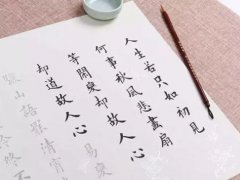 人生若只如初見
何事秋風悲畫扇
等閒變却故人心
却道故人心易變
山語罷清宵
終不